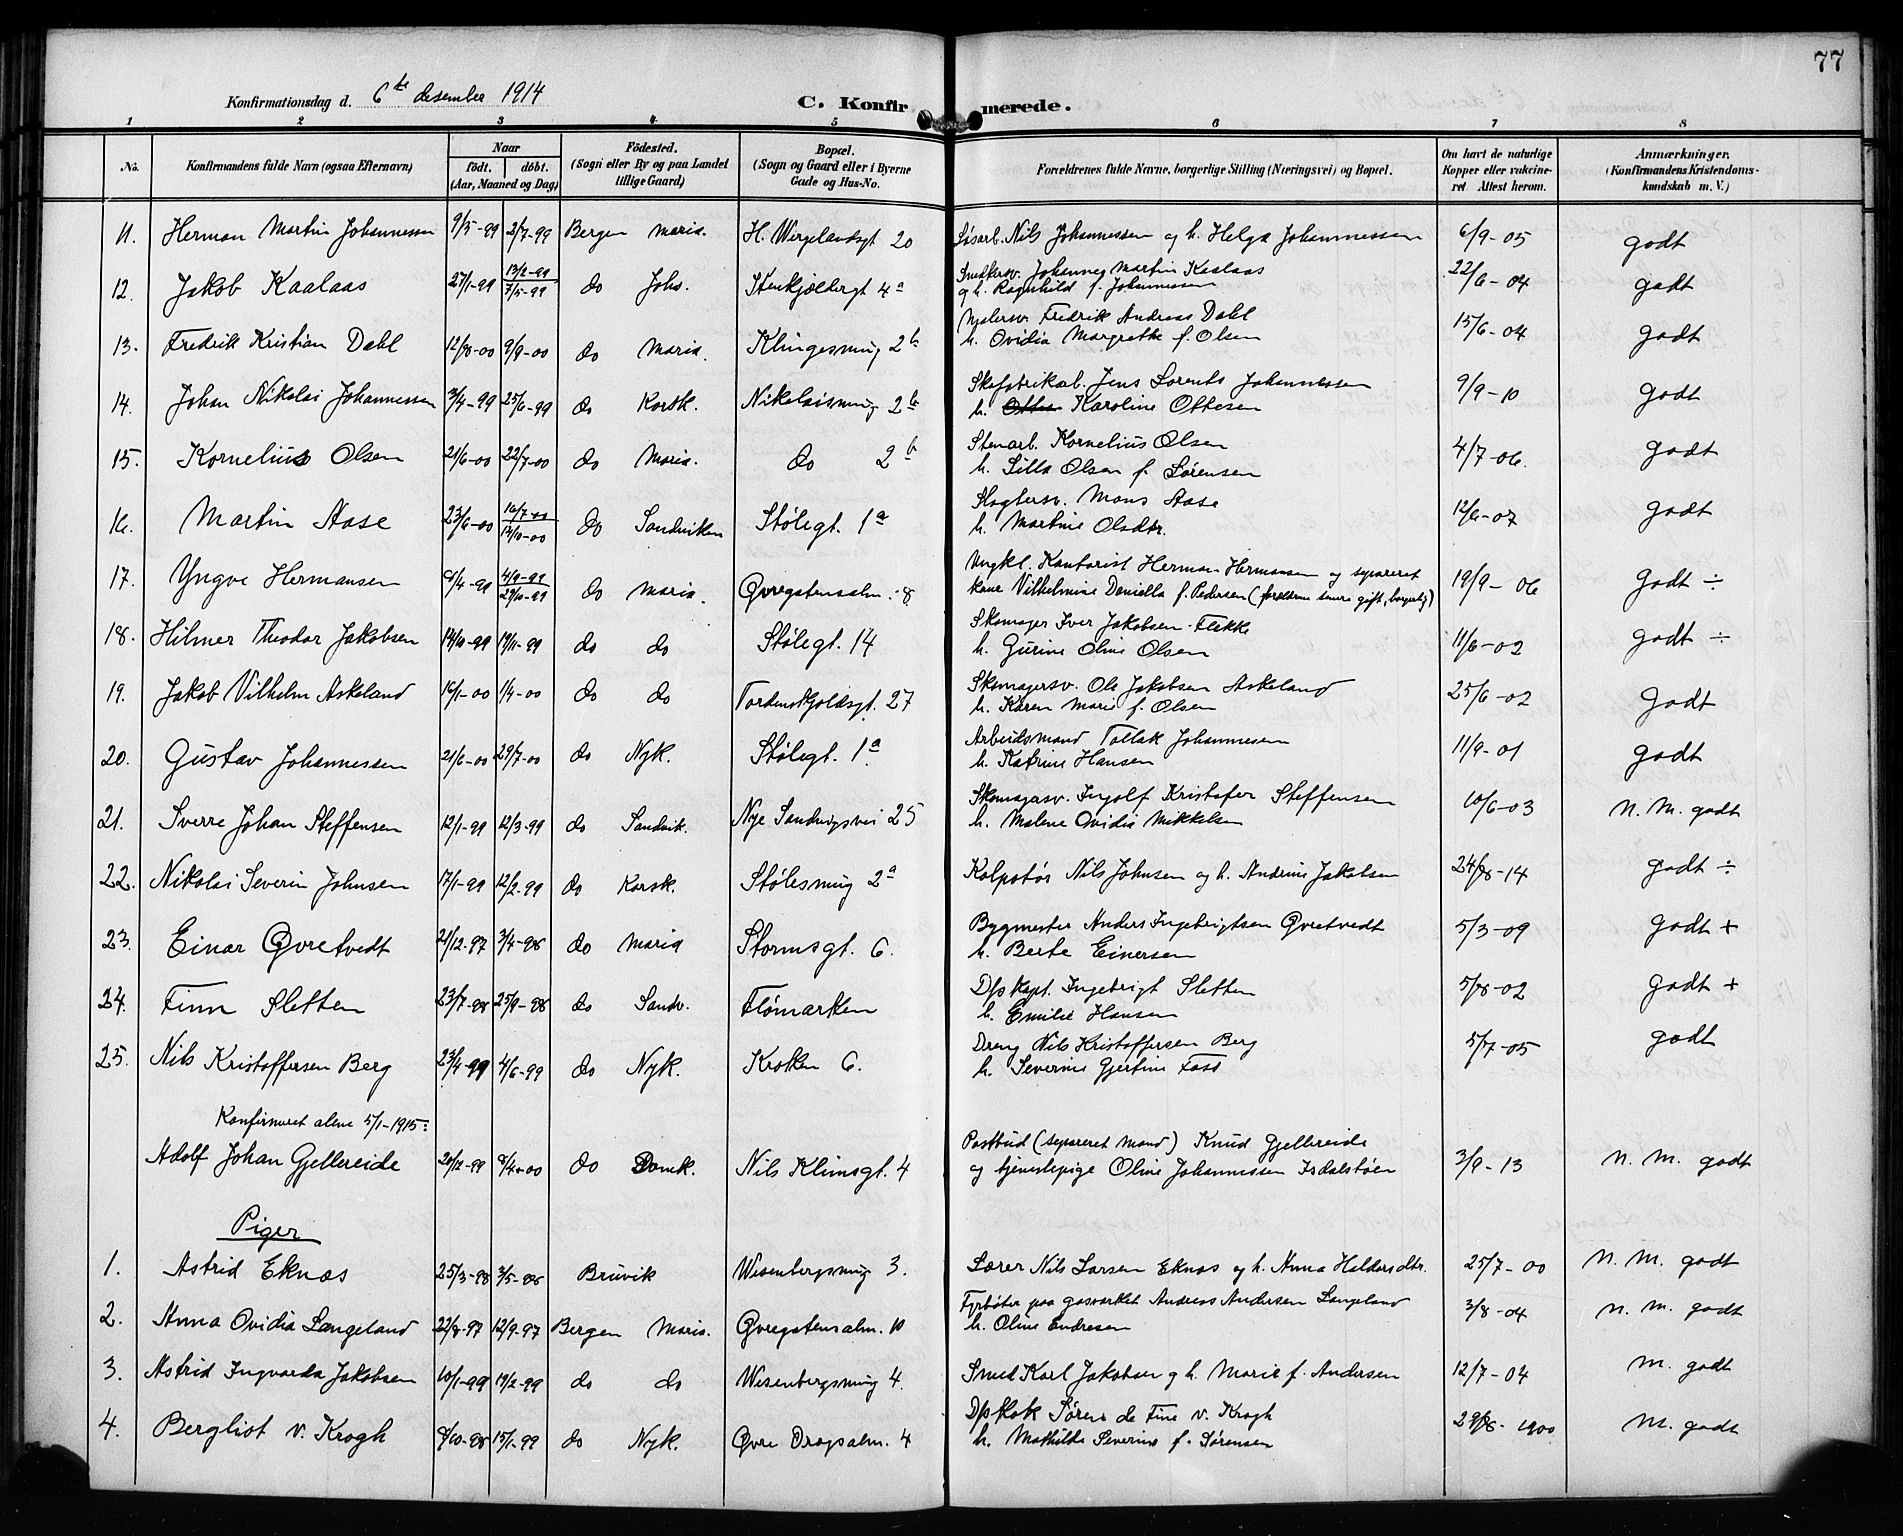 77
Konfirmationsdag d. 6te desember 1914
C. Konfirmerede.
1 2 3 4 5 6 7 8
No. Konfirmandens fulde Navn (ogsaa Efternavn) Naar födt. döbt. (Aar, Maaned og Dag) Födested. (Sogn eller By og paa Landet tillige Gaard) Bopæl. (Sogn og Gaard eller i Byerne Gade og Hus-No. Forældrenes fulde Navne, borgerlige Stilling (Næringsvei) og Bopæl. Om havt de naturlige Kopper eller vakcineret. Attest herom. Anmærkninger. (Konfirmandens Kristendomskundskab m. V.)
11. Herman Martin Johannessen 9/5-99 2/7-99 Bergen Maria. H. Wergelandsgt 20 Løsarb. Nils Johannessen og h. Helga Johannessen 6/9-05 godt
12. Jakob Kaalaas 27/1-99 13/2-99 7/5-99 do Johs. Stenkjældergt 4a Snekkersv. Johannes Martin Kaalaas
og h. Ragnhild f. Johannessen 22/6-04 godt
13. Fredrik Kristian Dahl 12/8-00 9/9-00 do Maria. Klingesmug 2b Malersv. Fredrik Andreas Dahl
h. Ovidia Margrethe f. Olsen 15/6-04 godt
14. Johan Nikolai Johannessen 3/4-99 25/6-99 do Korsk. Nikolaismug 2b Skofabrikarb. Jens Lorents Johannessen
h. Karoline Ottesen 9/9-10 godt
15. Kornelius Olsen 21/6-00 22/7-00 do Maria. do 2b Stenarb. Kornelius Olsen
h. Silla Olsen f. Sørensen 4/7-06. godt
16. Martin Aase 23/6-00 16/7-00 14/10-00 do Sandviken Stølegt. 1a Slagtersv. Mons Aase
h. Martine Olsdtr. 12/6-07 godt
17. Yngve Hermansen 8/4-99 4/9-99 29/10-99 do Maria. Øvregatensalm. 8 Ungkl. Kontorist Herman Hermansen og separeret
kone Vilhelmine Daniella f. Pedersen (forældrene senere gift, borgerlig) 19/9-06 godt ÷
18. Hilmer Theodor Jakobsen 14/10-99 19/11-99 do do Stølegt. 14 Skomager Iver Jakobsen Flekke
h. Gurine Oline Olsen 11/6-02 godt ÷
19. Jakob Vilhelm Askeland 16/1-00 1/4-00 do do Tordenskjoldsgt. 27 Skomagersv. Ole Jakobsen Askeland
h. Karen Marie f. Olsen 25/6-02 godt
20. Gustav Johannessen 21/6-00 29/7-00 do Nyk. Stølegt. 1a Arbeidsmand Tollak Johannessen
h. Katrine Hansen 11/9-01 godt
21. Sverre Johan Steffensen 12/1-99 12/3-99 do Sandvik. Nye Sandvigsvei 25 Skomagersv. Ingolf Kristofer Steffensen
h. Malene Ovidia Mikkelsen 10/6-03 N. M. godt
22. Nikolai Severin Johnsen 17/1-99 12/2-99 do Korsk. Stølesmug 2a Kolportør Nils Johnsen og h. Andrine Jakobsen 24/8-14 godt ÷
23. Einar Øvretvedt 21/12-97 3/4-98 do Maria Stormsgt. 6. Bygmester Anders Ingebrigtsen Øvretvedt
h. Berte Einersen 5/3-09 godt +
24. Finn Sletten 23/7-98 25/9-98 do Sandv. Fløimarken D/s kapt. Ingebrigt Sletten
h. Emilie Hansen 5/8-02 godt +
25. Nils Kristoffersen Berg 23/4-99 4/6-99 do Nyk. Kroken 6. Dreng Nils Kristoffersen Berg
h. Severine Gjertine Foss 5/7-05 godt
Konfirmeret alene 5/1-1915:
Adolf Johan Gjellereide 20/12-99 8/4-00 do Domk. Nils Klimsgt. 4 Postbud (separeret mand) Knud Gjellereide
og tjenestepige Oline Johannessen Isdalstøen 3/9-13 N. M. godt
Piger
1. Astrid Eknæs 25/3-98 3/5-98 Bruvik Wesenbergsmug 3. Lærer Nils Larsen Eknæs og h. Anna Haldorsdtr. 25/7-00 N. M. godt
2. Anna Ovidia Langeland 22/8-97 12/9-97 Bergen Maria. Øvregatensalm. 10 Fyrbøter paa gasverket Andreas Andersen Langeland
h. Oline Endresen 3/8-04 N. M. godt
3. Astrid Ingvarda Jakobsen 10/1-99 19/2-99 do do Wesenbergsmug 4. Smed Karl Jakobsen og h. Marie f. Andersen 12/7-04 M. godt
4. Bergliot v. Krogh 8/10-98 15/1-99 do Nyk. Øvre Dragsalm. 4 D/s kok Sören de Fine v. Krogh
h. Mathilde Severine f. Sørensen 29/8-1900 M. godt